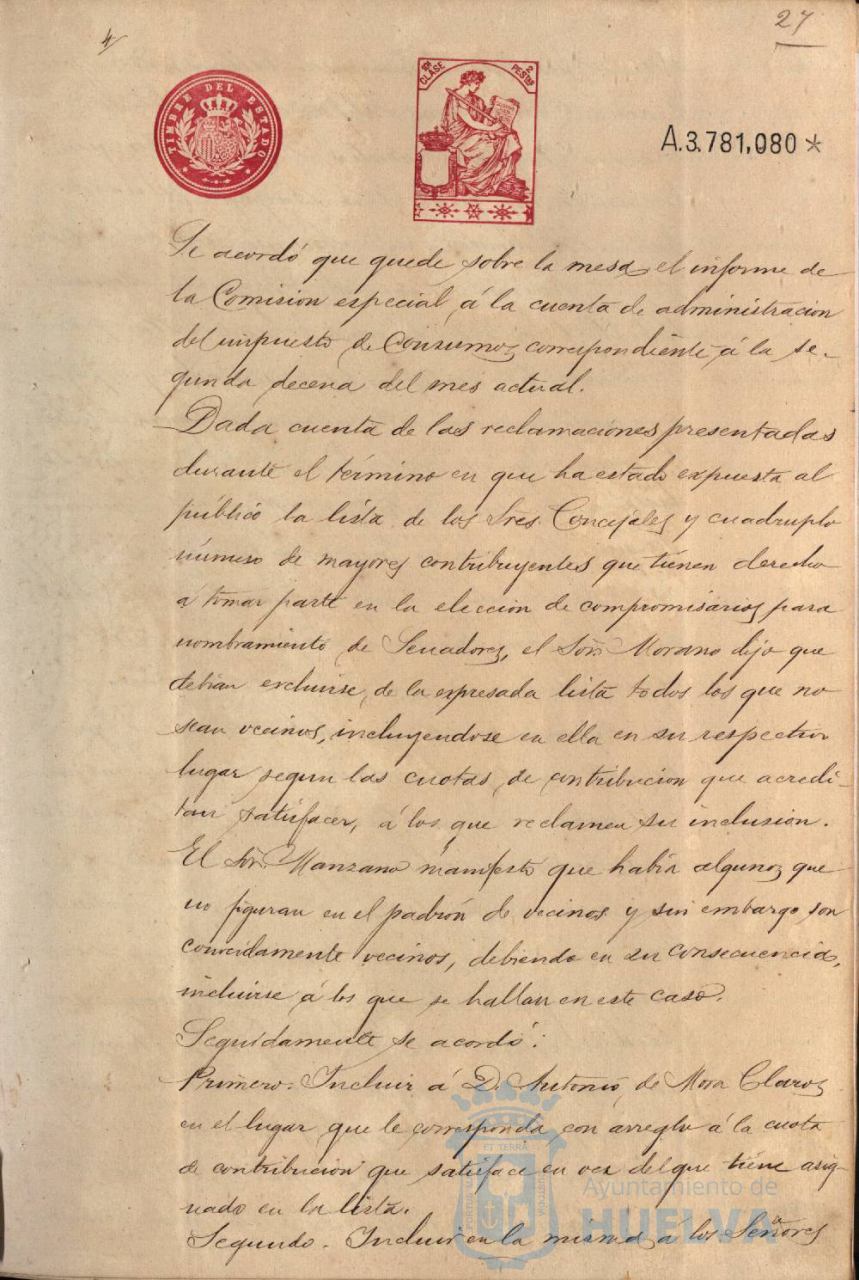 27
4
TIMBRE DEL ESTADO
CLASE
2 PESTAS
A.3.781,080*
Se acordó que quede sobre la mesa el informe de
la Comision especial á la cuenta de administracion
del impuesto de Consumos correspondiente á la se-
gunda decena del mes actual.
Dada cuenta de las reclamaciones presentadas
durante el término en que ha estado expuesta al
público la lista de los Sres. Concejales y cuadruplo
número de mayores contribuyentes que tienen derecho
á tomar parte en la eleccion de compromisarios para
nombramiento de Senadores, el Sor. Morano dijo que
debian excluirse, de la expresada lista todos los que no
sean vecinos, incluyendose en ella en su respectivo
lugar segun las cuotas de contribucion que acredi-
tan satisfacer, á los que reclamen su inclusion.
El Sor. Manzano manifestó que habia algunos que
no figuran en el padrón de vecinos y sin embargo son
conocidamente vecinos, debiendo en su consecuencia,
incluirse á los que se hallan en este caso.
Seguidamente se acordó:
Primero. Incluir á D. Antonio de Mora Claros
en el lugar que le corresponda, con arreglo á la cuota
de contribucion que satisface en vez del que tiene asig-
nado en la lista.
Segundo. Incluir en la misma á los Señores
ET TERRA
Ayuntamiento de
HUELVA